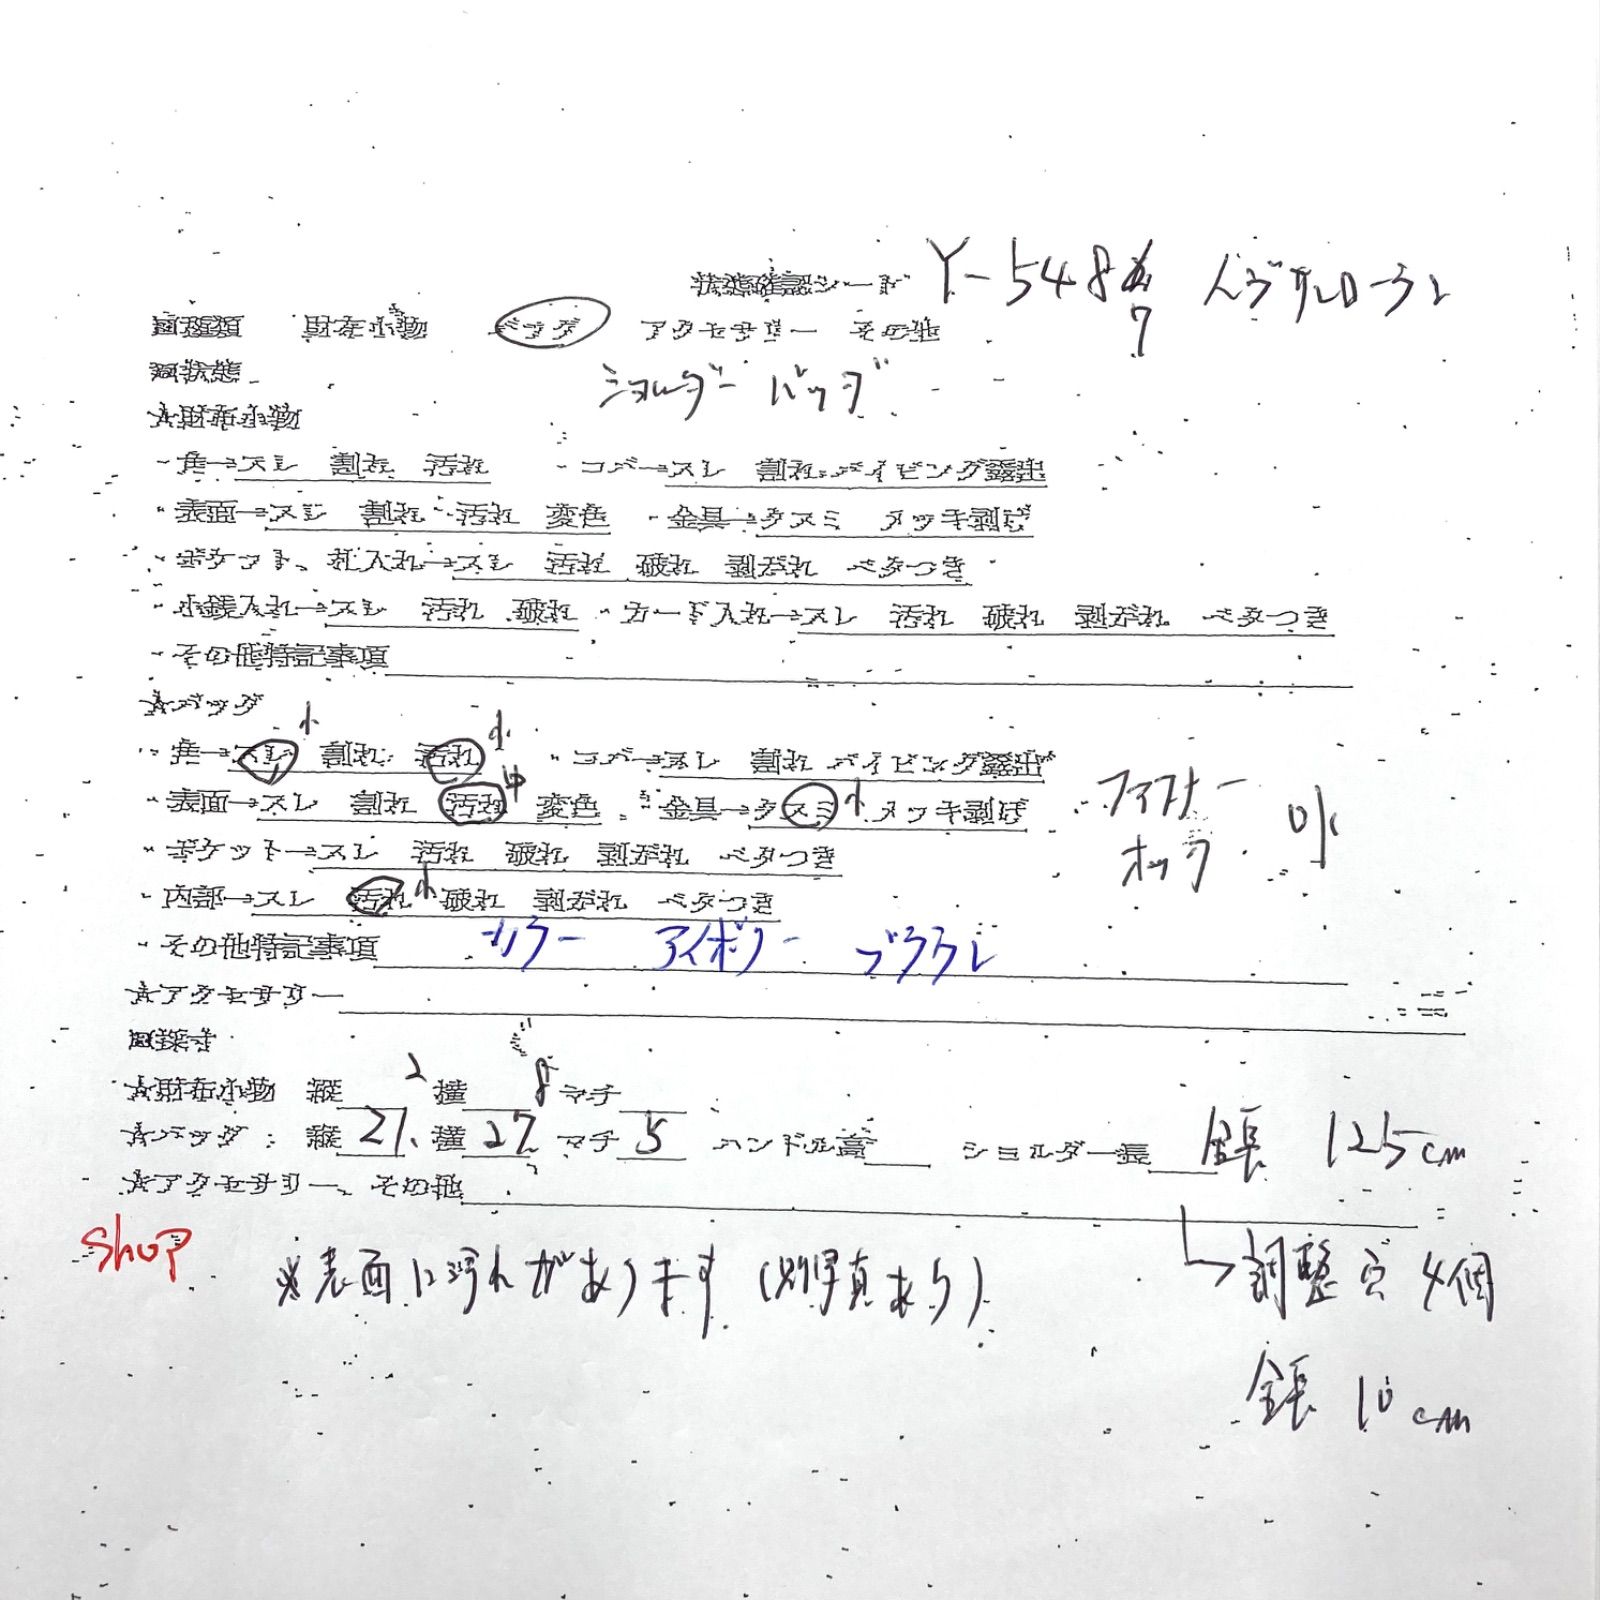 状態確認シート Y-5487 イヴサンローラン
■種類 財布小物 バッグ アクセサリー その他
■状態 ショルダーバッグ
★財布小物
・角→スレ 割れ 汚れ ・コバ→スレ 割れ パイピング露出
・表面→スレ 割れ 汚れ 変色 ・金具→クスミ メッキ剥げ
・ポケット、札入れ→スレ 汚れ 破れ 剥がれ ベタつき
・小銭入れ→スレ 汚れ 破れ ・カード入れ→スレ 汚れ 破れ 剥がれ ベタつき
・その他特記事項
★バッグ
・角→スレ 小 割れ 汚れ 小 ・コバ→スレ 割れ パイピング露出
・表面→スレ 割れ 汚れ 中 変色 ・金具→クスミ 小 メッキ剥げ ファスナー
・ポケット→スレ 汚れ 破れ 剥がれ ベタつき ホック
・内部→スレ 汚れ 小 破れ 剥がれ ベタつき
・その他特記事項 カラー アイボリー ブラウン
★アクセサリー
■採寸
★財布小物 縦 横 マチ
★バッグ : 縦 21 横 27 マチ 5 ハンドル高 ショルダー長 全長 125cm
★アクセサリー、その他
shop ※表面に汚れがあります (別写真あり) 調整穴 4個
全長 10cm